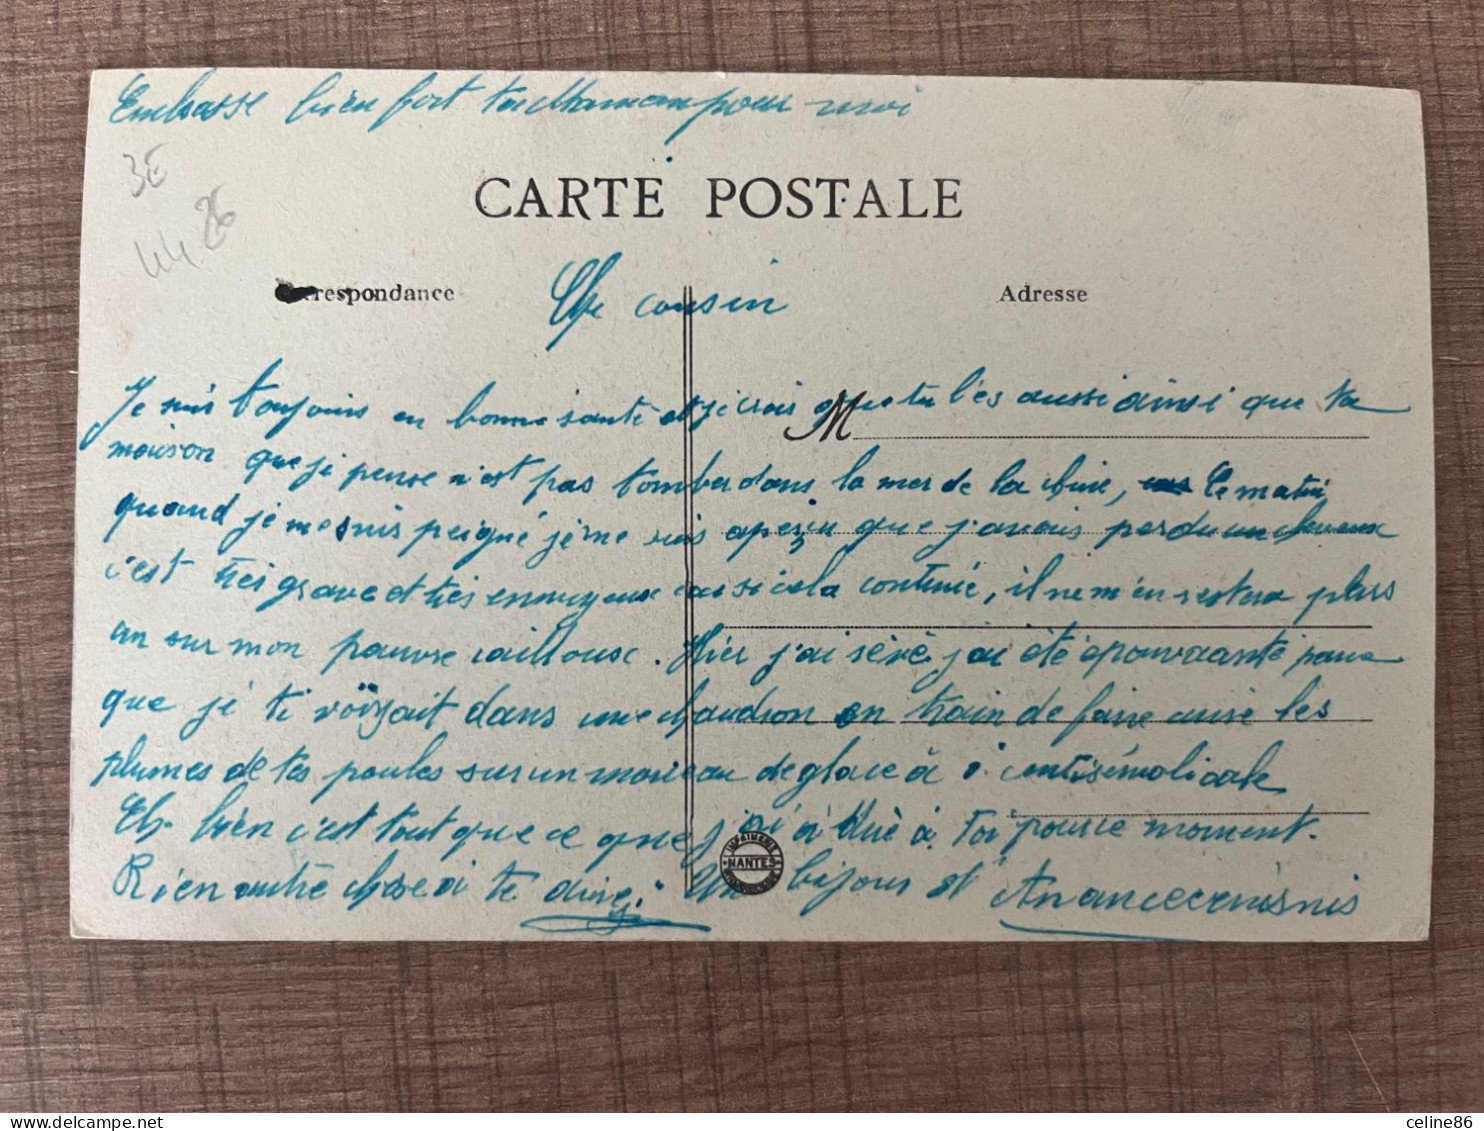 Embrasse bien fort ta Maman pour moi
3E
44. 26
CARTE POSTALE
Correspondance
Adresse
Cher cousin
M
Je suis toujours en bonne santé et je crois que tu l'es aussi ainsi que ta
maison que je pense n'est pas tomber dans la mer de la Chine, Ce matin
quand je me suis peigné je me suis aperçu que j'avais perdu un cheveux
c'est très grave et très ennuyeux car si cela continue, il ne m'en restera plus
un sur mon pauvre cailloux. Hier j'ai rêvé j'ai été épouvanté parce
que je ti voïzait dans une chaudron en train de faire cuire les
plumes de tes poules sur un morceau de glace à
Eh bien c'est tout que ce que j'ai à dire à Toi pour ce moment.
Rien autre chose à te dire. Un bijour et
IMPRIMERIE
NANTES
celine86